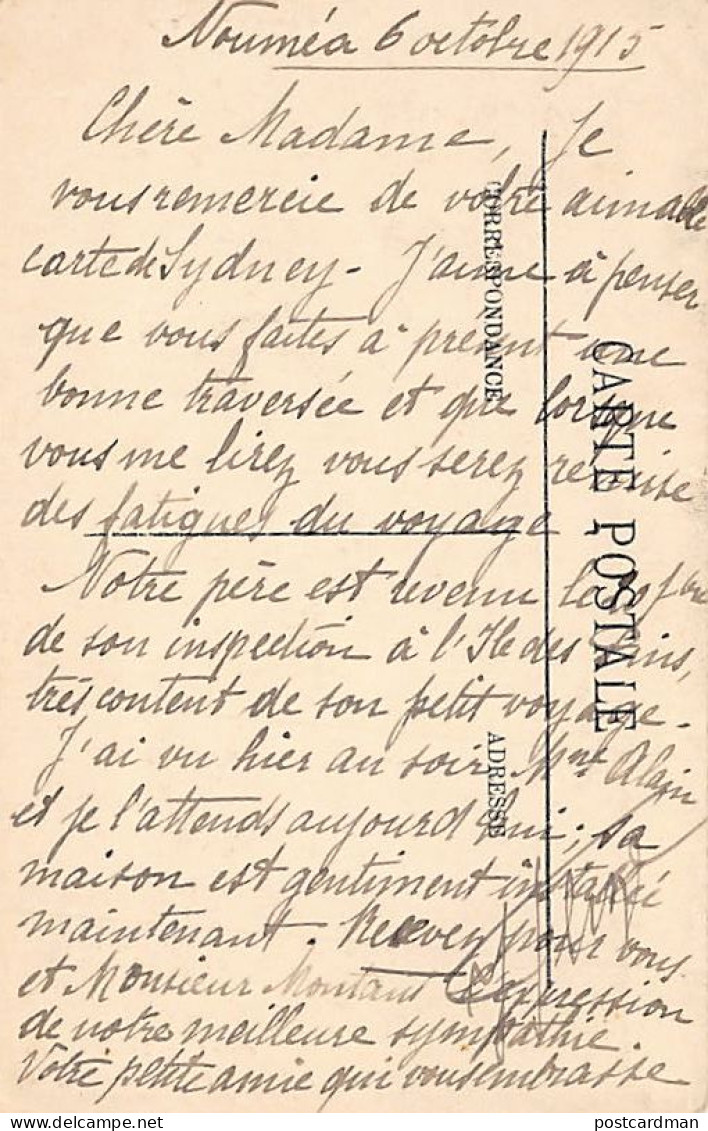 Nouméa 6 octobre 1915
Chère Madame, Je
vous remercie de votre aimable
carte de Sydney - J'aime à penser
que vous faites à présent une
bonne traversée et que lorsque
vous me lirez vous serez remise
des fatigues du voyage -
Notre père est revenu le
de son inspection à l'Ile des Pins,
très content de son petit voyage -
J'ai vu hier au soir Mme Alain
et je l'attends aujourd'hui; sa
maison est gentiment installée
maintenant. Recevez pour vous
et Monsieur Montant l'expression
de notre meilleure sympathie.
Votre petite amie qui vous embrasse
CORRESPONDANCE
CARTE POSTALE
ADRESSE
postcardman